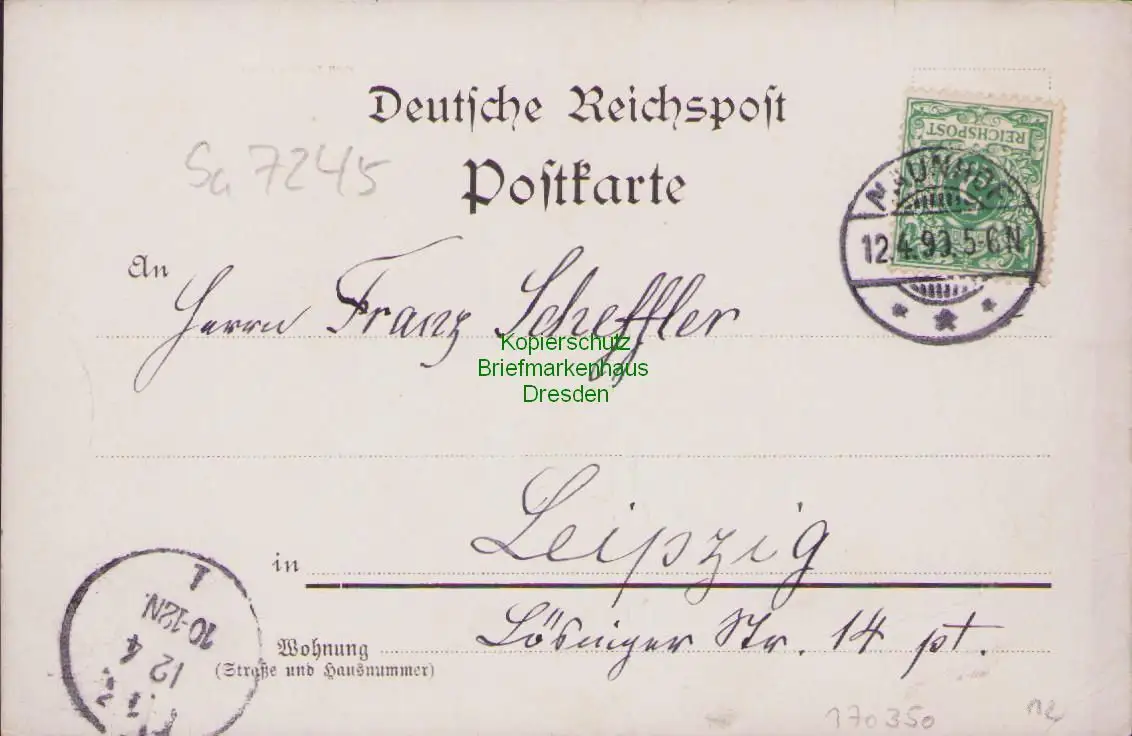 Deutsche Reichspost
Postkarte
Sa 7245
REICHSPOST
NAUNHOF
12.4.99. 5-6N
An Herrn Franz Scheffler
Kopierschutz
Briefmarkenhaus
Dresden
in Leipzig
Wohnung Lösniger Str. 14 pt.
(Straße und Hausnummer)
1
10-12N.
12 4
170350
12